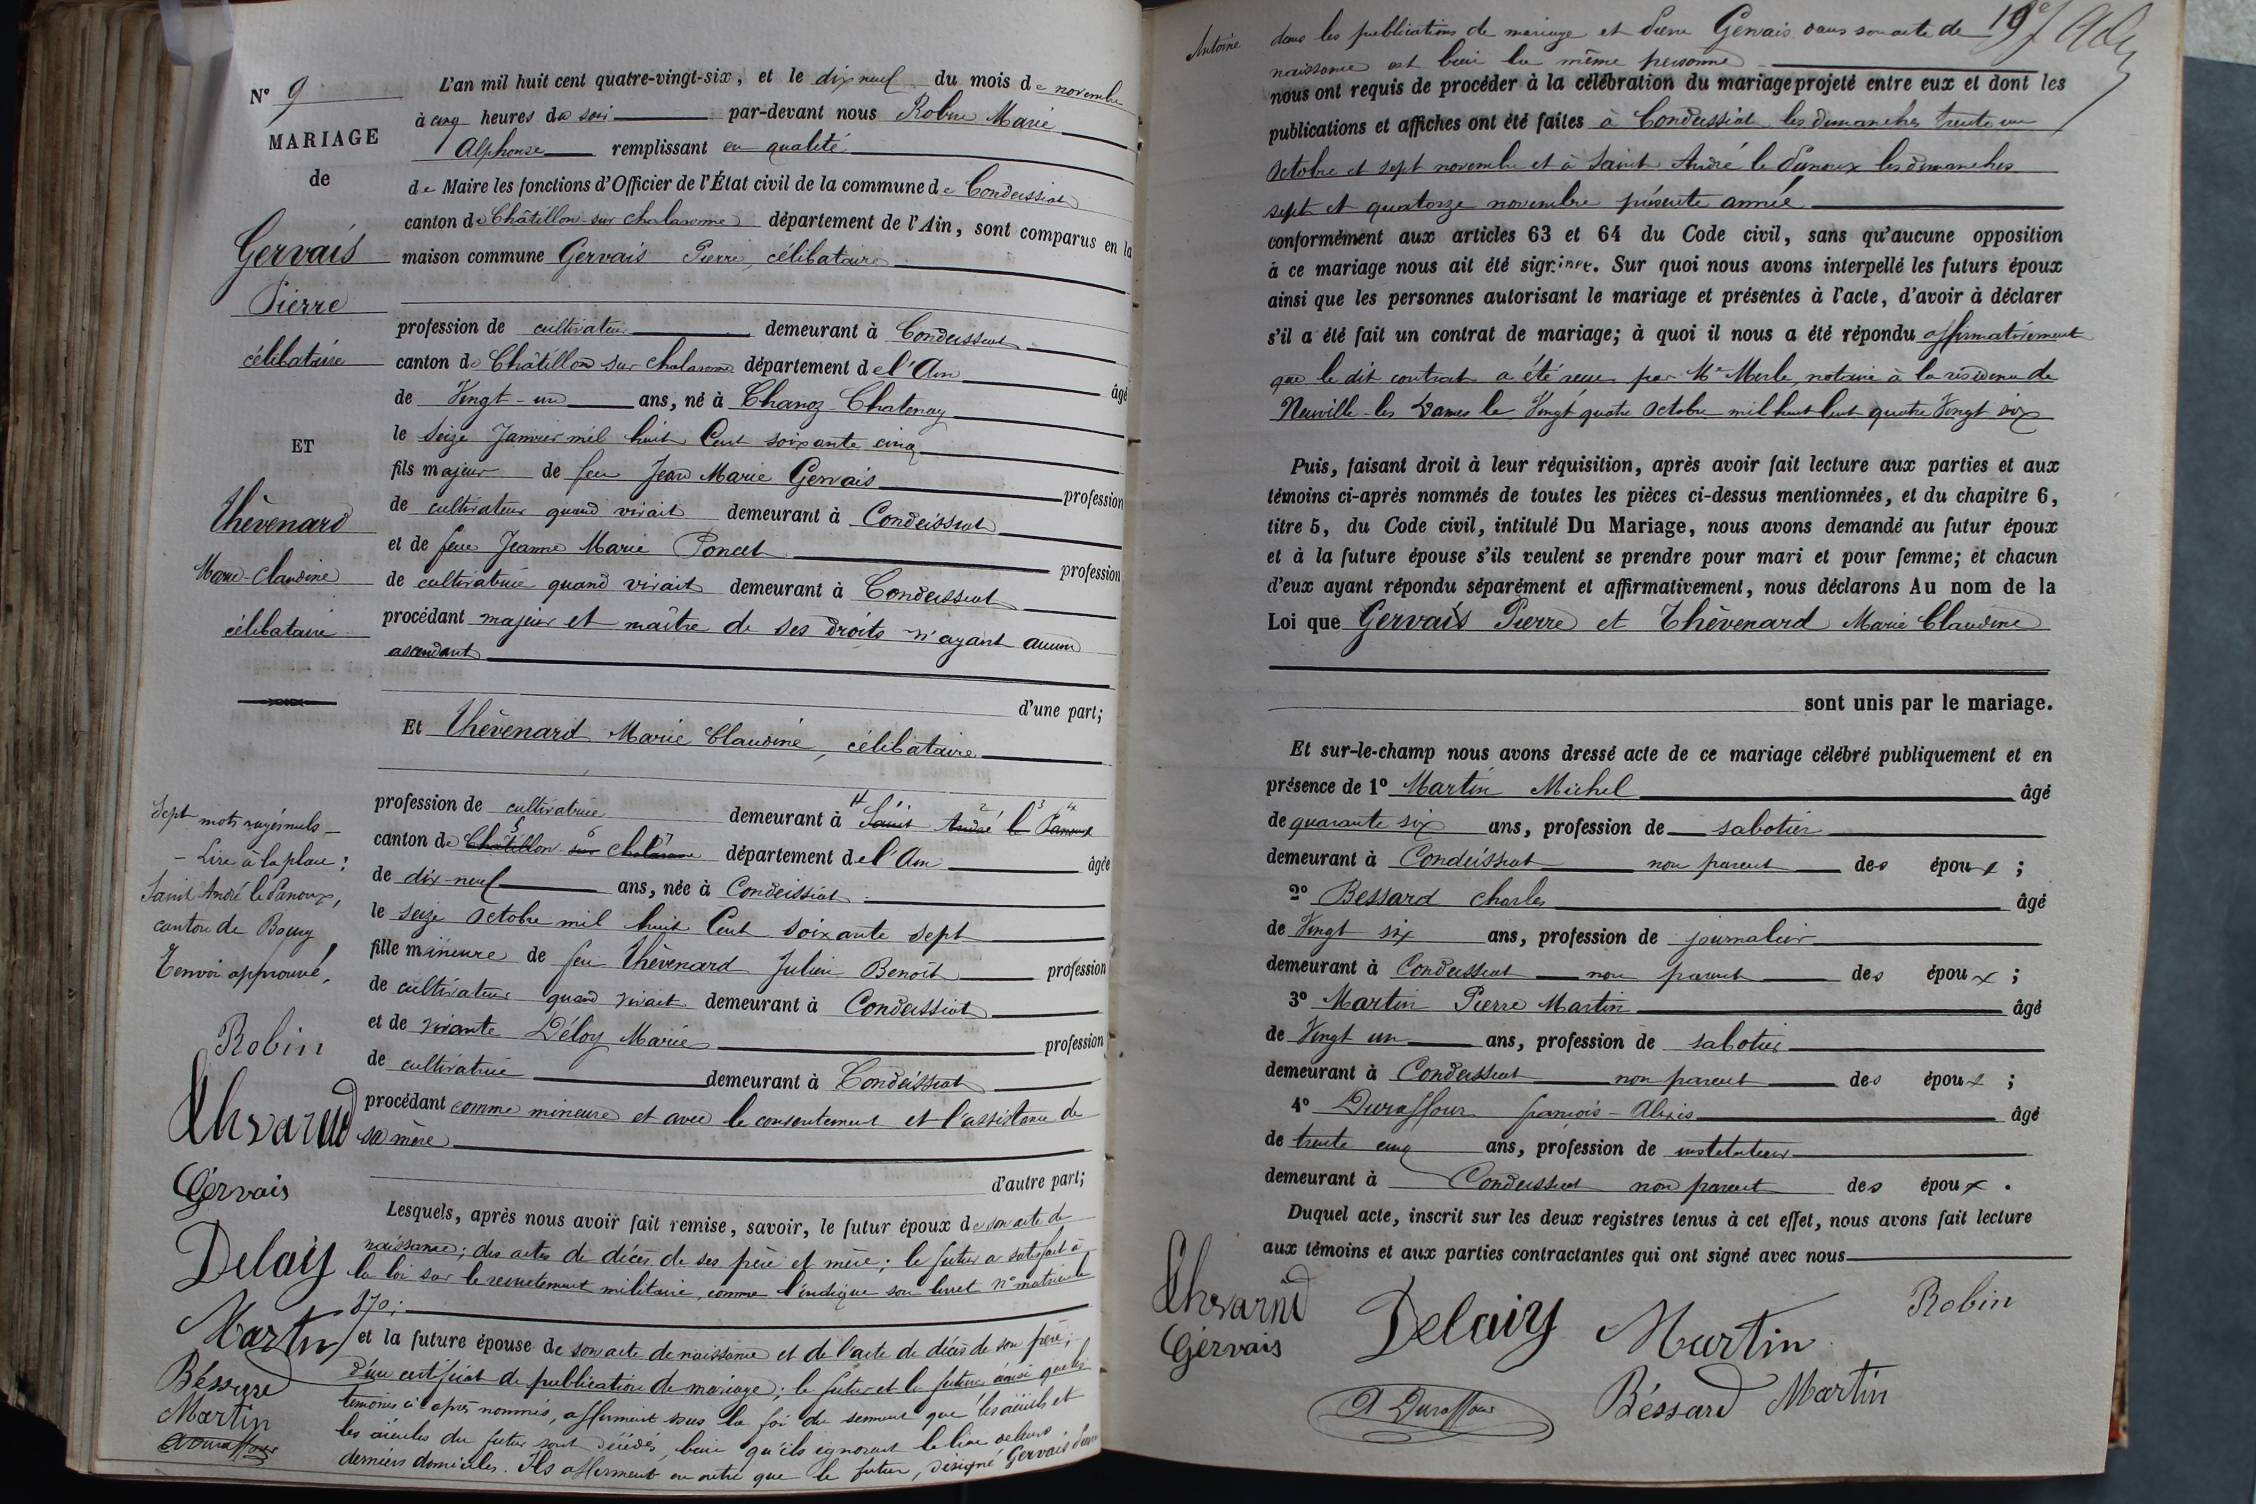 N° 9
MARIAGE
de
Gervais
Pierre
célibataire
ET
Thévenard
Marie-Claudine
célibataire
Sept mots rayés nuls —
— Lire à la place :
Saint André le Panoux,
canton de Bourg
Renvoi approuvé,
Robin
Gervais
Delaiy
Martin
Béssard
Martin
A Duraffour
L'an mil huit cent quatre-vingt-six, et le dix neuf du mois de novembre
à cinq heures du soir par-devant nous Robin Marie
Alphonse remplissant en qualité
de Maire les fonctions d'Officier de l'État civil de la commune de Condeissiat
canton de Châtillon-sur-chalaronne département de l'Ain, sont comparus en la
maison commune Gervais Pierre, célibataire
profession de cultivateur demeurant à Condeissiat
canton de Châtillon sur chalaronne département de l'Ain âgé
de Vingt-un ans, né à Chanoz Chatenay
le seize Janvier mil huit Cent soixante cinq
fils majeur de feu Jean Marie Gervais profession
de cultivateur quand vivait demeurant à Condeissiat
et de feue Jeanne Marie Poncet profession
de cultivatrice quand vivait demeurant à Condeissiat
procédant majeur et maître de ses droits n'ayant aucun
ascendant
d'une part;
Et Thévenard Marie Claudine, célibataire
profession de cultivatrice demeurant à Saint André le Panoux
canton de Châtillon sur chalaronne département de l'Ain âgée
de dix-neuf ans, née à Condeissiat
le seize Octobre mil huit Cent soixante sept
fille mineure de feu Thévenard Julien Benoît profession
de cultivateur quand vivait demeurant à Condeissiat
et de vivante Déloy Marie profession
de cultivatrice demeurant à Condeissiat
procédant comme mineure et avec le consentement et l'assistance de
sa mère
d'autre part;
Lesquels, après nous avoir fait remise, savoir, le futur époux de son acte de
naissance; des actes de décès de ses père et mère; le futur a satisfait à
la loi sur le recrutement militaire, comme l'indique son livret n° matricule
870;
et la future épouse de son acte de naissance et de l'acte de décès de son père;
d'un certificat de publication de mariage; le futur et la future ainsi que les
témoins ci-après nommés, affirment sous la foi du serment que les aïeuls et
les aïeules du futur sont décédés, bien qu'ils ignorent le lieu de leurs
derniers domiciles. Ils affirment en outre que le futur, désigné Gervais Pierre
Antoine dans les publications de mariage et Pierre Gervais dans son acte de
naissance est bien la même personne
nous ont requis de procéder à la célébration du mariage projeté entre eux et dont les
publications et affiches ont été faites à Condeissiat les dimanches trente un
Octobre et sept novembre et à Saint André le Panoux les dimanches
sept et quatorze novembre présente année
conformément aux articles 63 et 64 du Code civil, sans qu'aucune opposition
à ce mariage nous ait été signifiée. Sur quoi nous avons interpellé les futurs époux
ainsi que les personnes autorisant le mariage et présentes à l'acte, d'avoir à déclarer
s'il a été fait un contrat de mariage; à quoi il nous a été répondu affirmativement
que le dit contrat a été reçu par Me Merle, notaire à la résidence de
Neuville-les Dames le Vingt quatre Octobre mil huit Cent quatre Vingt six
Puis, faisant droit à leur réquisition, après avoir fait lecture aux parties et aux
témoins ci-après nommés de toutes les pièces ci-dessus mentionnées, et du chapitre 6,
titre 5, du Code civil, intitulé Du Mariage, nous avons demandé au futur époux
et à la future épouse s'ils veulent se prendre pour mari et pour femme; et chacun
d'eux ayant répondu séparément et affirmativement, nous déclarons Au nom de la
Loi que Gervais Pierre et Thévenard Marie Claudine
sont unis par le mariage.
Et sur-le-champ nous avons dressé acte de ce mariage célébré publiquement et en
présence de 1° Martin Michel âgé
de quarante six ans, profession de sabotier
demeurant à Condeissiat non parent des époux ;
2° Bessard charles âgé
de Vingt six ans, profession de journalier
demeurant à Condeissiat non parent des époux ;
3° Martin Pierre Martin âgé
de Vingt un ans, profession de sabotier
demeurant à Condeissiat non parent des époux ;
4° Duraffour françois-Alexis âgé
de trente cinq ans, profession de instituteur
demeurant à Condeissiat non parent des époux .
Duquel acte, inscrit sur les deux registres tenus à cet effet, nous avons fait lecture
aux témoins et aux parties contractantes qui ont signé avec nous
Robin
Gervais
Delaiy Martin
Béssard Martin
A Duraffour